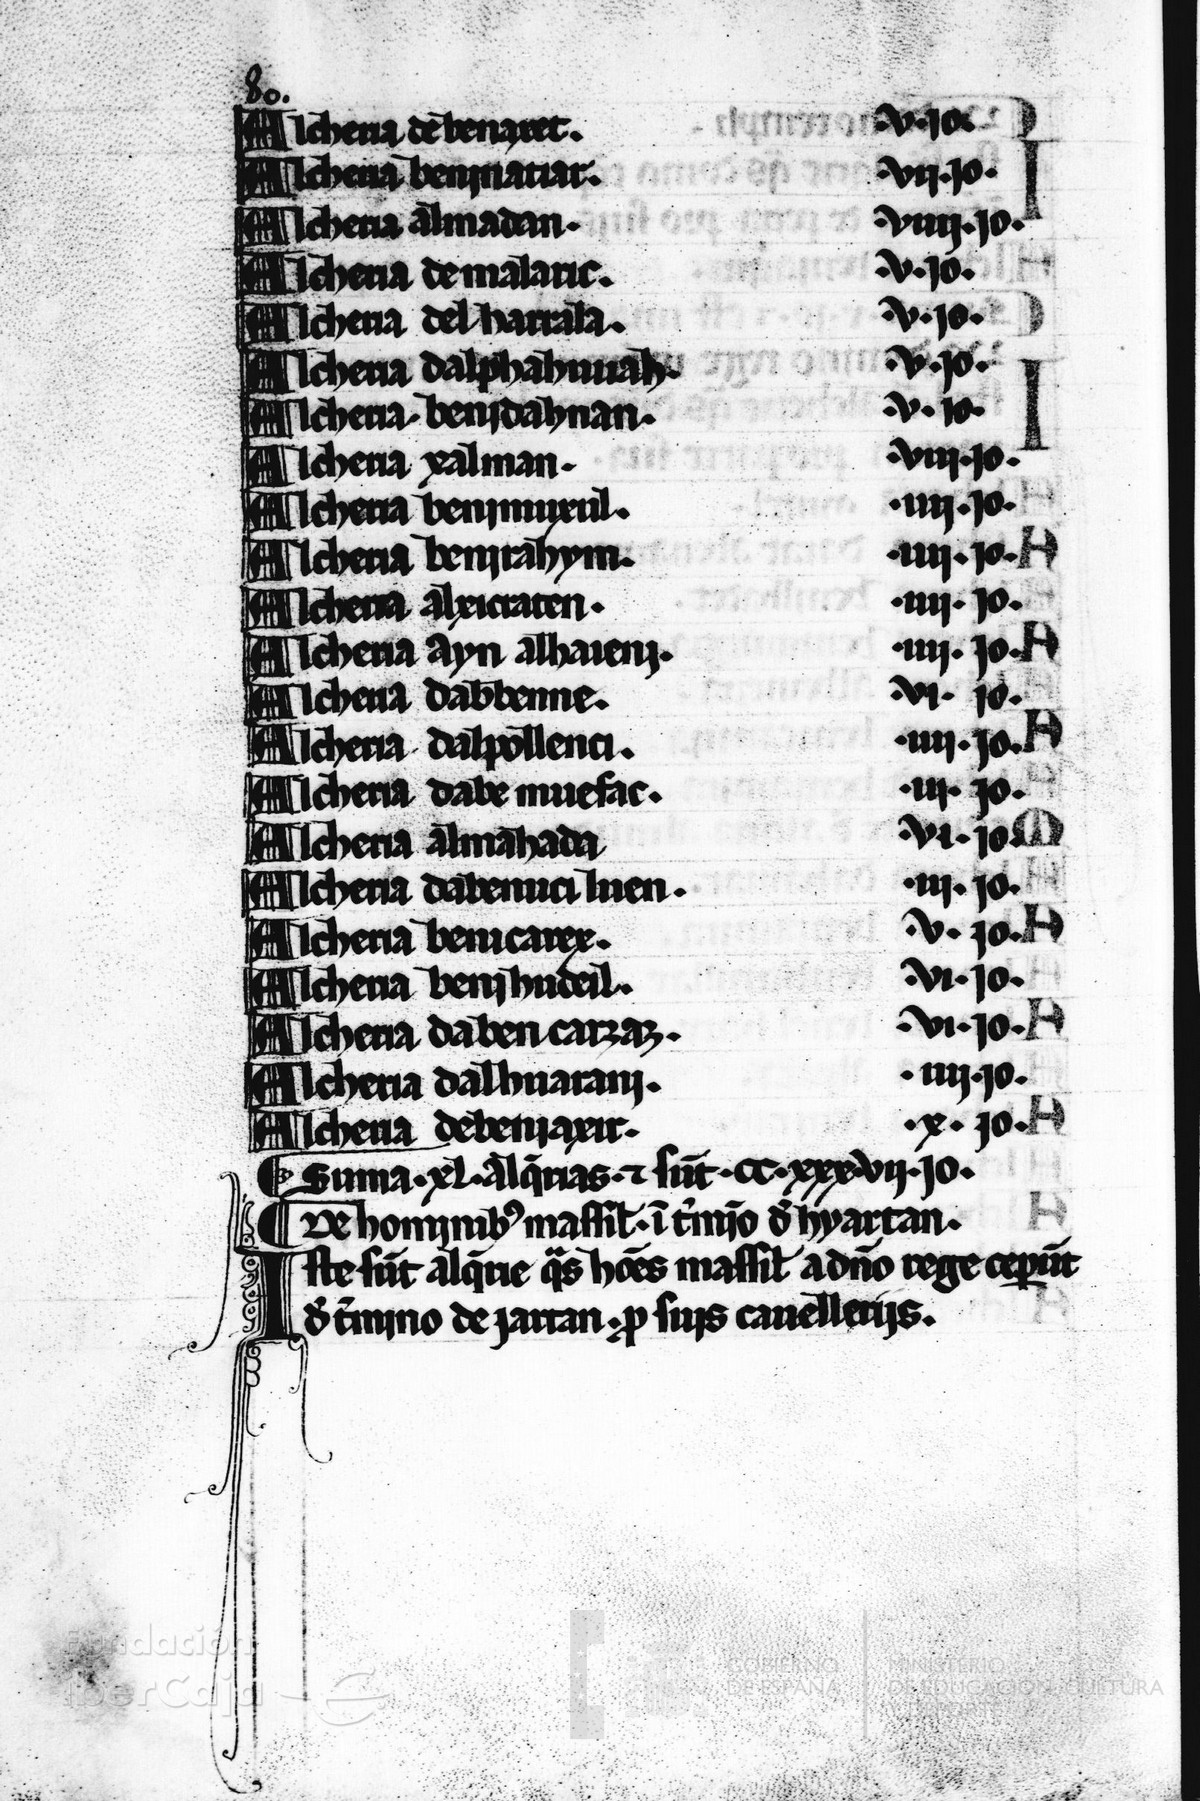 80.
Alcheria de benaxet. ·v·jo·
Alcheria benjnatiar. ·vij·jo·
Alcheria almadan· ·viiij·jo·
Alcheria de malaric. ·v·jo·
Alcheria del harrala. ·v·jo·
Alcheria dalphahuuah. ·v·jo·
Alcheria· benjdahnan. ·v·jo·
Alcheria xalman· ·viij·jo·
Alcheria ·iiij·jo·
Alcheria benjrahym. ·iiij·jo·
Alcheria ·iiij·jo·
Alcheria ayn ·iiij·jo·
Alcheria dabbenne. ·vi·jo·
Alcheria dalpollenci. ·iiij·jo·
Alcheria dabe muefac. ·iij·jo·
Alcheria almahadj ·vi·jo·
Alcheria dabenuci luen. ·iij·jo·
Alcheria benicarex. ·v·jo·
Alcheria benjhudeil. ·vi·jo·
Alcheria daben carzaz. ·vi·jo·
Alcheria dalhuaranj. ·iiij·jo·
Alcheria debenjaxir. ·x·jo·
¶ Suma·xl·alq̄rias·⁊ sūt·cc·xxxvij·jo·
¶ De homjnibꝰ massil̄·ī t̄mjo đ hyartan·
Iste sūt alq̄rie q̄s hōēs massil̄ a dn̄o rege ceꝑūt
đ t̄mjno de jartan·ꝓ suis cauallerijs.
Fundación
iberCaja
GOBIERNO
DE ESPAÑA
MINISTERIO
DE EDUCACIÓN, CULTURA
Y DEPORTE